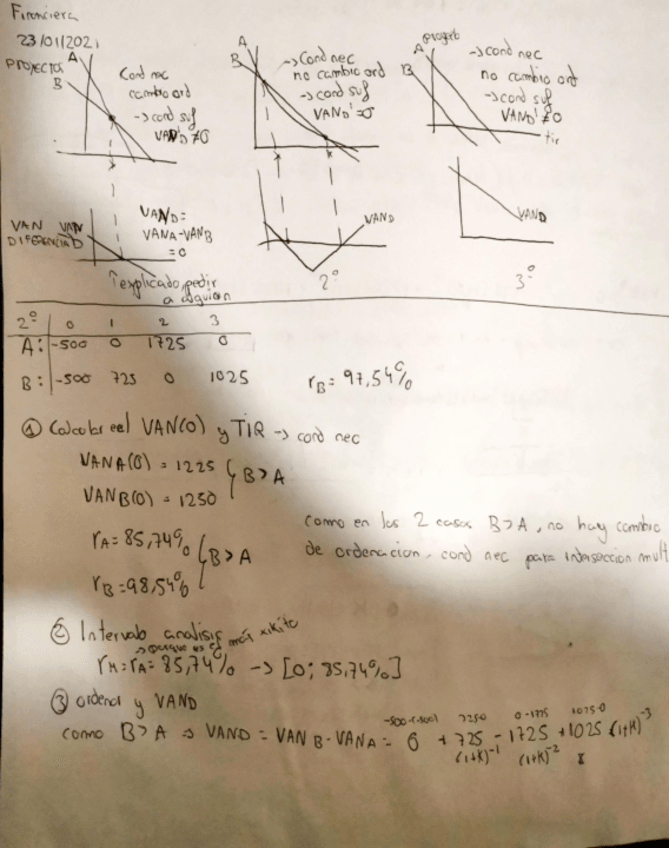 Financiera
23/01/2021
PROYECTOS A
B
Cond nec
cambio ord
-> cond suf
VAND' ≠ 0
VAN
DIFERENCIA
VAND
VAND =
VANA - VANB
= 0
explicado, pedir
a alguien
A
B
-> Cond nec
no cambio ord
-> cond suf
VAND' = 0
VAND
2º
A
B
-> cond nec
no cambio ord
-> cond suf
VAND' ≠ 0
tir
VAND
3º
2º 0 1 2 3
A: -500 0 1725 0
B: -500 725 0 1025
rB = 97,54%
① Calcular el VAN(0) y TIR -> cond nec
VANA(0) = 1225
VANB(0) = 1250
B > A
rA = 85,74%
rB = 98,54%
B > A
como en los 2 casos B > A, no hay cambio
de ordenacion, cond nec para interseccion mult
② Intervalo analisis
-> porque es el más xikito
rM = rA = 85,74% -> [0; 85,74%]
③ ordenar y VAND
-500-(-500) 725-0 0-1725 1025-0
como B > A => VAND = VANB - VANA = 0 + 725 - 1725 + 1025 (1+K)^-3
(1+K)^-1 (1+K)^-2